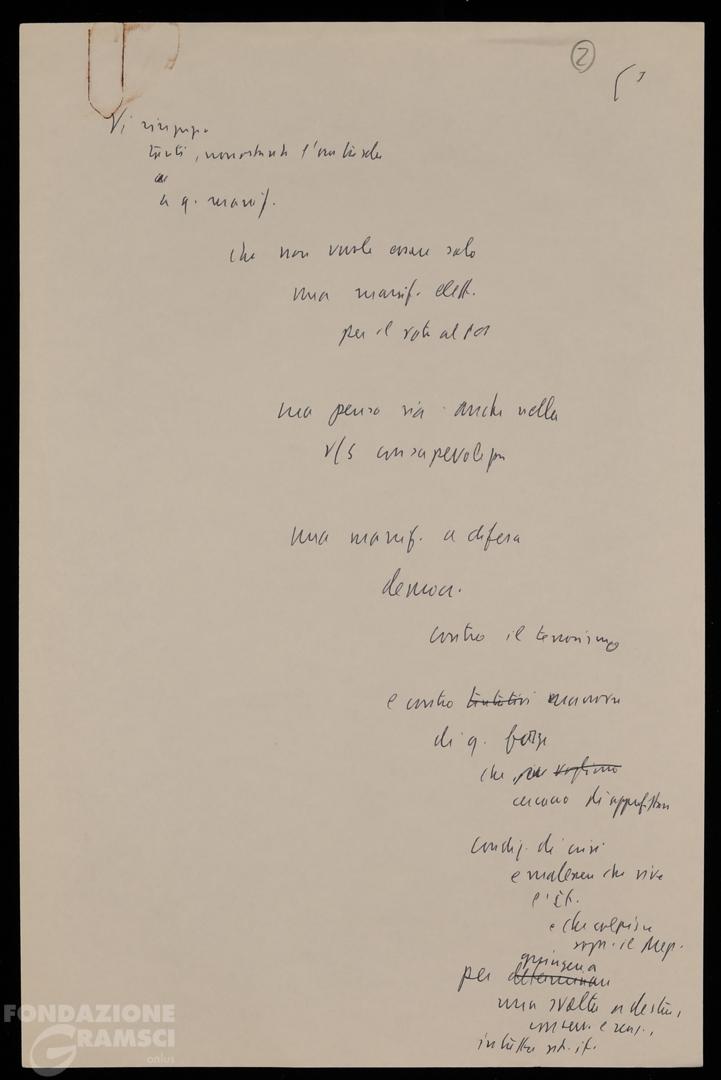 2
Vi ringrazio
tutti,
a q. manif.
che non vuole essere solo
una manif. elett.
per il voto al PCI
ma penso sia anche nella
v/s consapevolezza
una manif. a difesa
democr.
contro il terrorismo
e contro tentativi manovre
di q. forze
che vogliono
cercano di approfittare
condiz. di crisi
e malessere che vive
l'It.
e che colpisce
sopr. il Mezz.
spingere a
per determinare
una svolta a destra,
conserv. e reaz.,
in tutta it.
FONDAZIONE
GRAMSCI
onlus